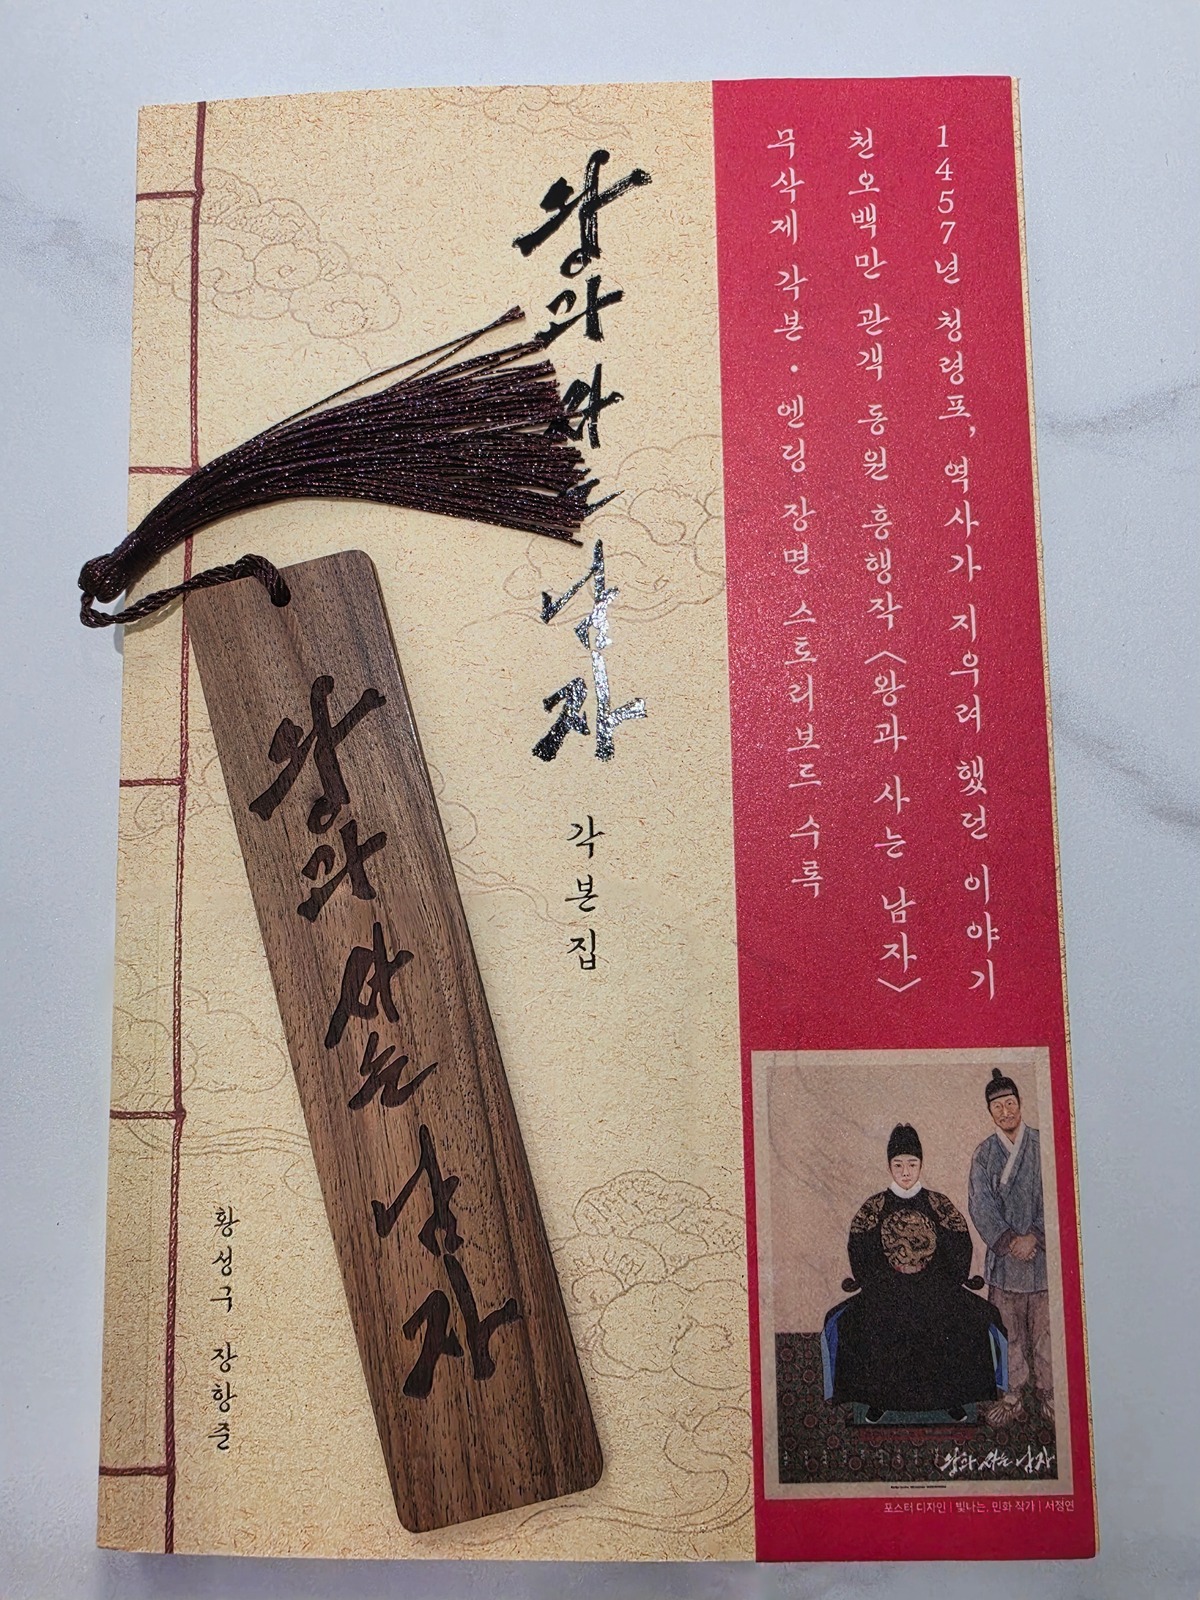 왕과 사는 남자
각본집
황성구 장항준
1457년 청령포, 역사가 지우려 했던 이야기
천오백만 관객 동원 흥행작 〈왕과 사는 남자〉
무삭제 각본 · 엔딩 장면 스토리보드 수록
왕과 사는 남자
왕과 사는 남자
포스터 디자인 | 빛나는, 민화 작가 | 서정연